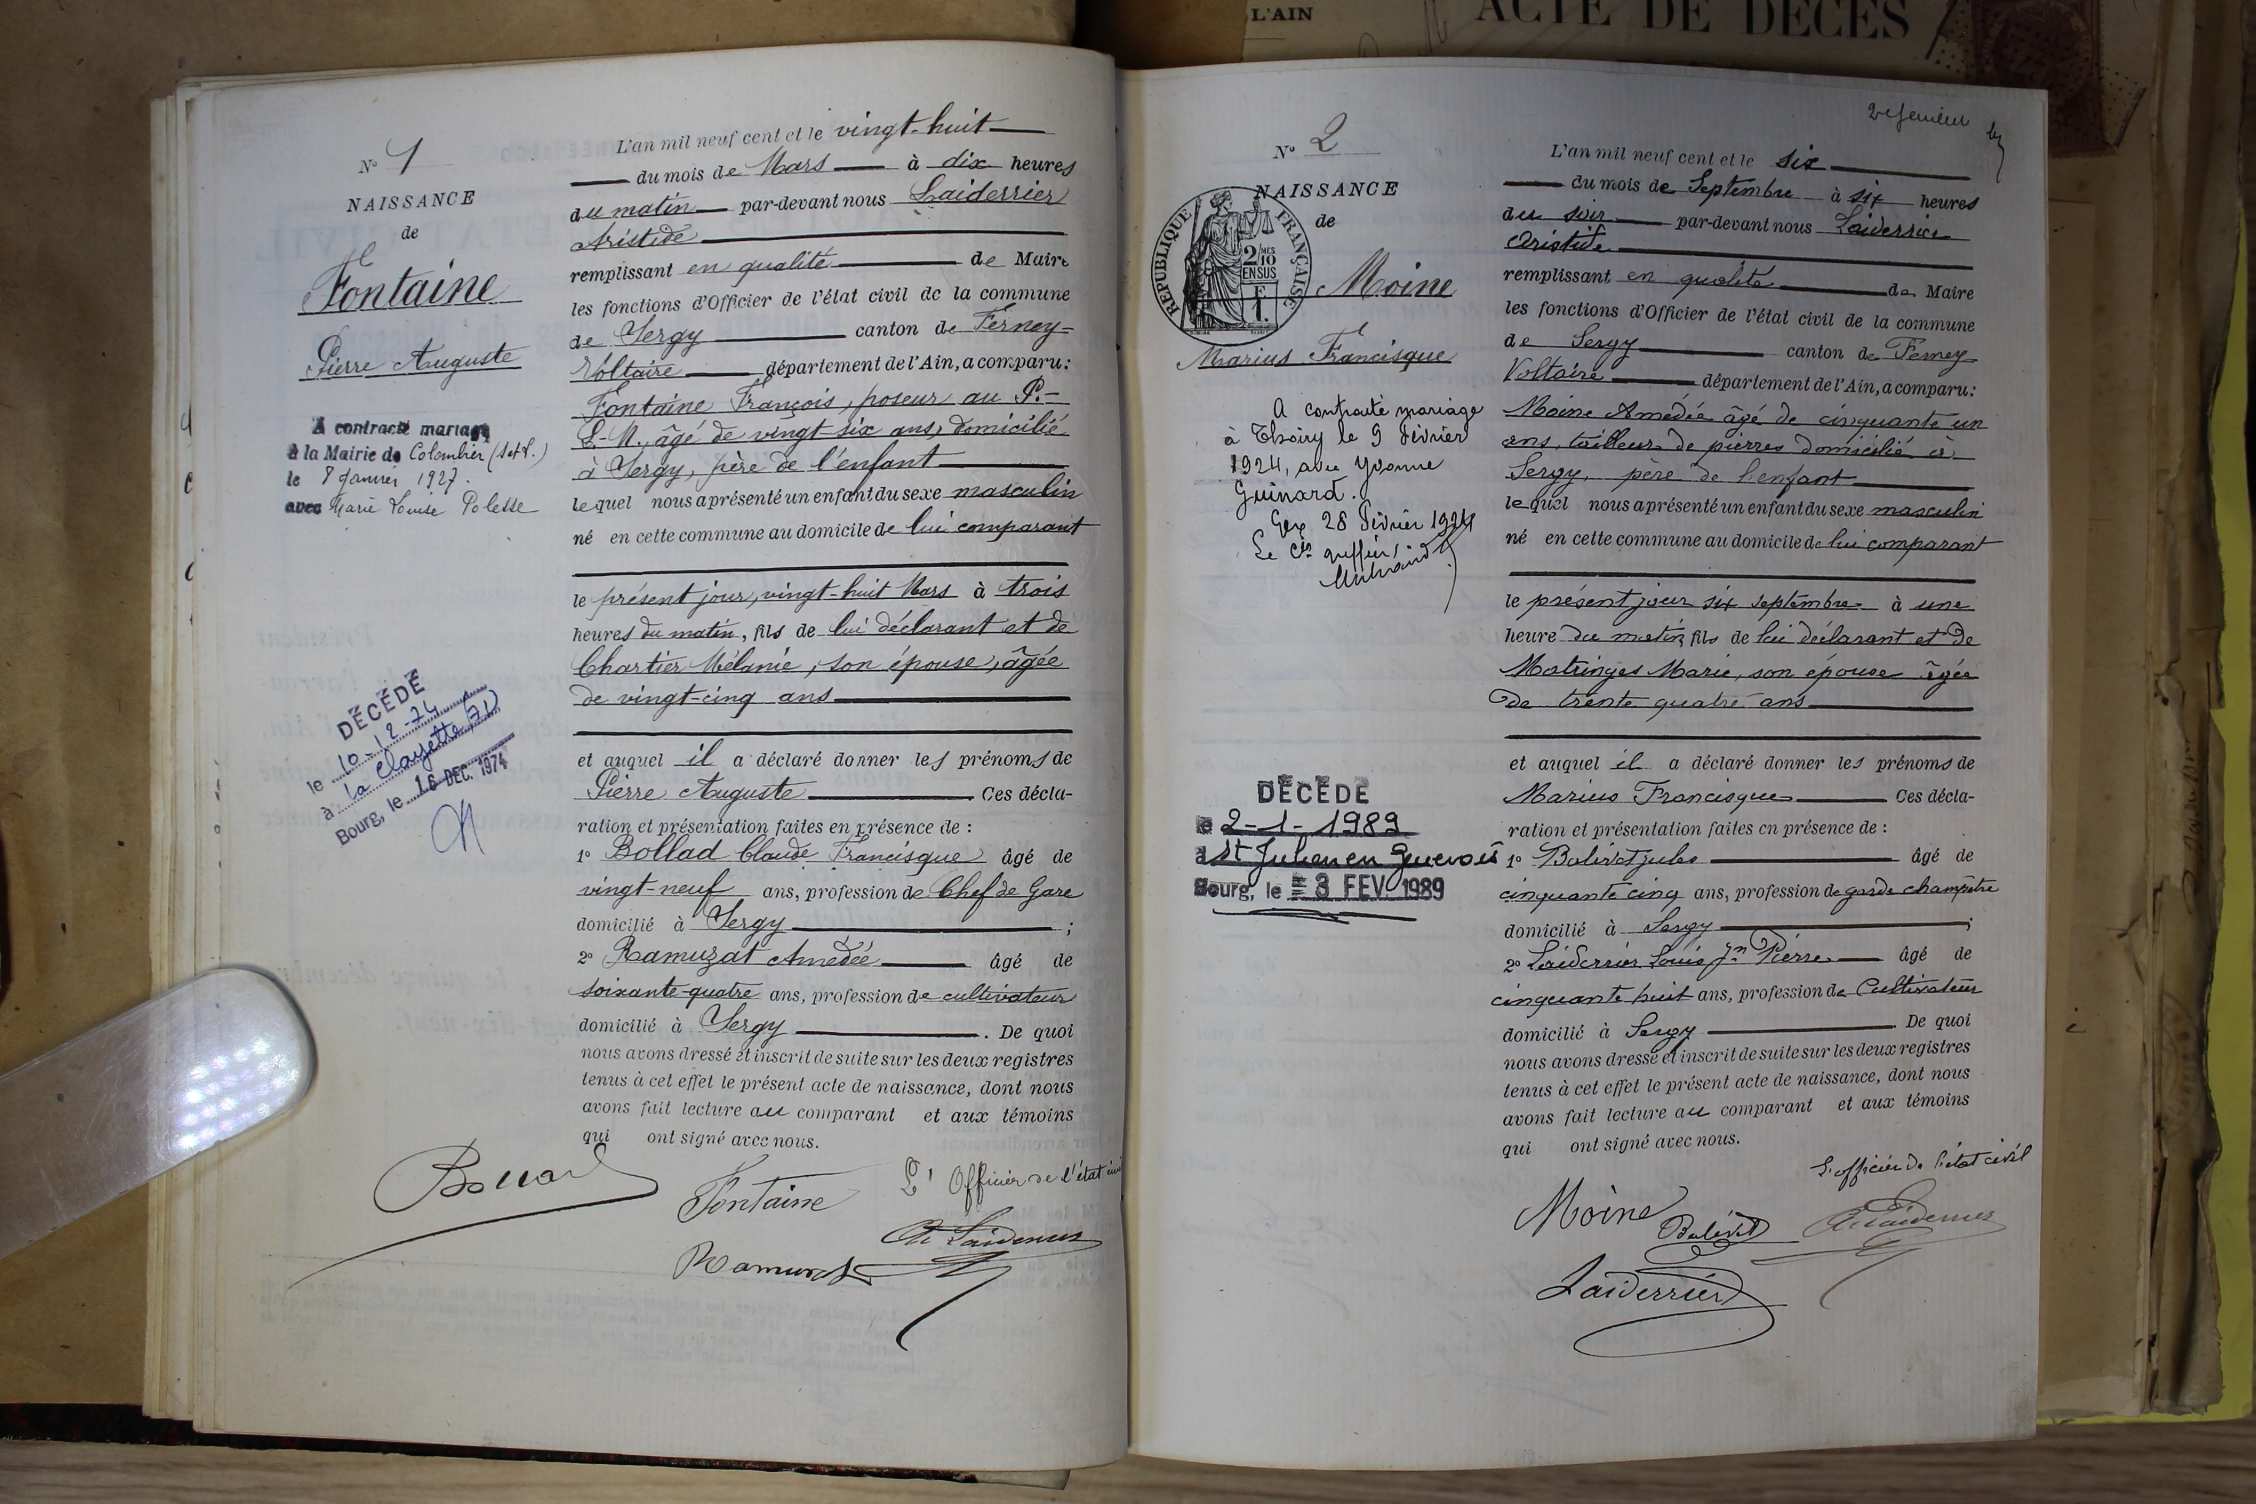 L'AIN
ACTE DE DÉCÈS
N° 1
NAISSANCE
de
Fontaine
Pierre Auguste
A contracté mariage
à la Mairie de Colombier (S.et L.)
le 8 Janvier 1927.
avec Marie Louise Polesse
DÉCÉDÉ
le 10-12-74
à La Clayette (71)
Bourg, le 16 DEC. 1974
L'an mil neuf cent et le vingt-huit
du mois de Mars à dix heures
du matin par-devant nous Laiderrier
Aristide
remplissant en qualité de Maire
les fonctions d'Officier de l'état civil de la commune
de Sergy canton de Ferney-
Voltaire département de l'Ain, a comparu:
Fontaine François, poseur au P.-
L-M., âgé de vingt-six ans, domicilié
à Sergy, père de l'enfant
lequel nous a présenté un enfant du sexe masculin
né en cette commune au domicile de lui comparant
le présent jour, vingt-huit Mars à trois
heures du matin, fils de lui déclarant et de
Chartier Mélanie, son épouse, âgée
de vingt-cinq ans
et auquel il a déclaré donner les prénoms de
Pierre Auguste Ces décla-
ration et présentation faites en présence de :
1° Bollad Claude Francisque âgé de
vingt-neuf ans, profession de Chef de Gare
domicilié à Sergy ;
2° Ramuzat Amédée âgé de
soixante-quatre ans, profession de cultivateur
domicilié à Sergy . De quoi
nous avons dressé et inscrit de suite sur les deux registres
tenus à cet effet le présent acte de naissance, dont nous
avons fait lecture au comparant et aux témoins
qui ont signé avec nous.
L'Officier de l'état civil
Fontaine
Ramuzat
2e feuillet
N° 2
NAISSANCE
de
RÉPUBLIQUE FRANÇAISE
2/10 MES
EN SUS
F
1.
Moine
Marius Francisque
A contracté mariage
à Thoiry le 9 février
1924, avec Yvonne
Guinard.
Gex 28 février 1924
Le Cis greffier,
DÉCÉDÉ
le 2-1-1989
à St Julien en Genevois
Bourg, le 3 FEV. 1989
L'an mil neuf cent et le six
du mois de Septembre à six heures
du soir par-devant nous Laiderrier
Aristide
remplissant en qualité de Maire
les fonctions d'Officier de l'état civil de la commune
de Sergy canton de Ferney
Voltaire département de l'Ain, a comparu:
Moine Amédée âgé de cinquante un
ans, tailleur de pierres domicilié à
Sergy, père de l'enfant
lequel nous a présenté un enfant du sexe masculin
né en cette commune au domicile de lui comparant
le présent jour six septembre à une
heure du matin, fils de lui déclarant et de
Matringes Marie, son épouse âgée
de trente quatre ans
et auquel il a déclaré donner les prénoms de
Marius Francisque Ces décla-
ration et présentation faites en présence de :
1° Balivet Jules âgé de
cinquante cinq ans, profession de garde champêtre
domicilié à Sergy ;
2° Laiderrier Louis Jn Pierre âgé de
cinquante huit ans, profession de Cultivateur
domicilié à Sergy . De quoi
nous avons dressé et inscrit de suite sur les deux registres
tenus à cet effet le présent acte de naissance, dont nous
avons fait lecture au comparant et aux témoins
qui ont signé avec nous.
L'officier de l'état civil
Moine
Balivet
Laiderrier